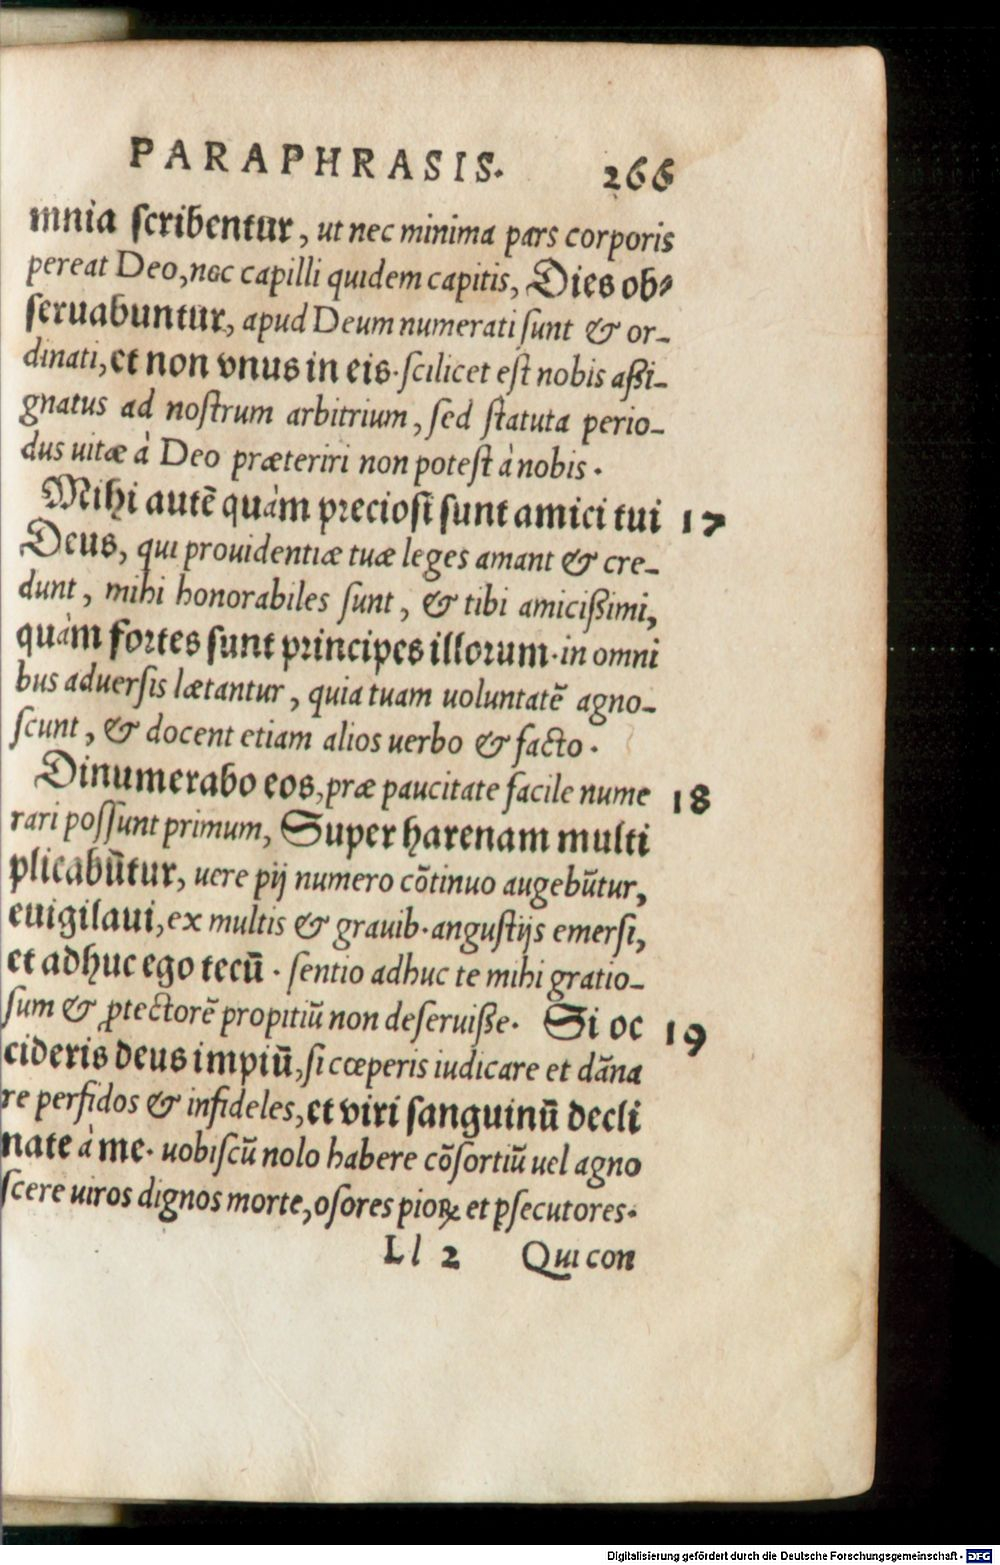 PARAPHRASIS. 266
mnia ſcribentur, ut nec minima pars corporis
pereat Deo, nec capilli quidem capitis, Dies ob⸗
ſeruabuntur, apud Deum numerati ſunt & or-
dinati, et non vnus in eis. ſcilicet eſt nobis aßi-
gnatus ad noſtrum arbitrium, ſed ſtatuta perio-
dus uitæ à Deo præteriri non poteſt à nobis.
Mihi autē quàm precioſi ſunt amici tui 17
Deus, qui prouidentiæ tuæ leges amant & cre-
dunt, mihi honorabiles ſunt, & tibi amicißimi,
quàm fortes ſunt principes illorum. in omni
bus aduerſis lætantur, quia tuam uoluntatē agno-
ſcunt, & docent etiam alios uerbo & facto.
Dinumerabo eos, præ paucitate facile nume 18
rari poſſunt primum, Super harenam multi
plicabūtur, uere pij numero cōtinuo augebūtur,
euigilaui, ex multis & grauib. anguſtijs emerſi,
et adhuc ego tecū. ſentio adhuc te mihi gratio-
ſum & ꝓtectorē propitiū non deſeruiße. Si oc 19
cideris deus impiū, ſi cœperis iudicare et dāna
re perfidos & infideles, et viri ſanguinū decli
nate à me. uobiſcū nolo habere cōſortiū uel agno
ſcere uiros dignos morte, oſores pioꝝ et ꝑſecutores.
Ll 2 Qui con
Digitalisierung gefördert durch die Deutsche Forschungsgemeinschaft - DFG